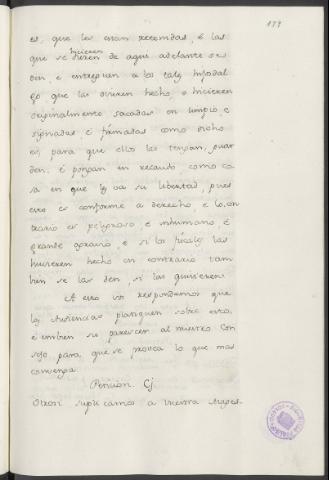 179
es, que les estan recevidas, é las
que se dieren de aqui adelante se
hicieren
den, e entreguen a los tales hijodal
go que las ovieren hecho, o hicieren
originalmente sacadas en limpio, e
signadas, é firmadas como dicho
es, para que ellos las tengan, guar
den, é pongan en recaudo, como ca
sa en que les va su libertad, pues
esto es conforme a derecho e lo con
trario es peligroso, é inhumano, é
grande agravio, e si los fiscales las
huvieren hecho en contrario tam
bien se las den, si las quisieren.
A esto vos respondemos que
las Audiencias platiquen sobre esto,
é embien su parescer al nuestro Con
sejo, para que se provea lo que mas
convenga.
Peticion Cj
Otrosi suplicamos a Vuestra Mages-